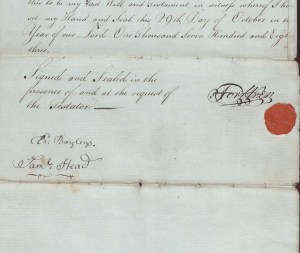 this to be my Last Will and Testament in witness whereof I have
set my Hand and Seal this 29th Day of October in the
Year of our Lord One thousand Seven Hundred and Eigh
three.
Signed and Sealed in the
presence of and at the request of
the Testator.
Bayley
Saml Head